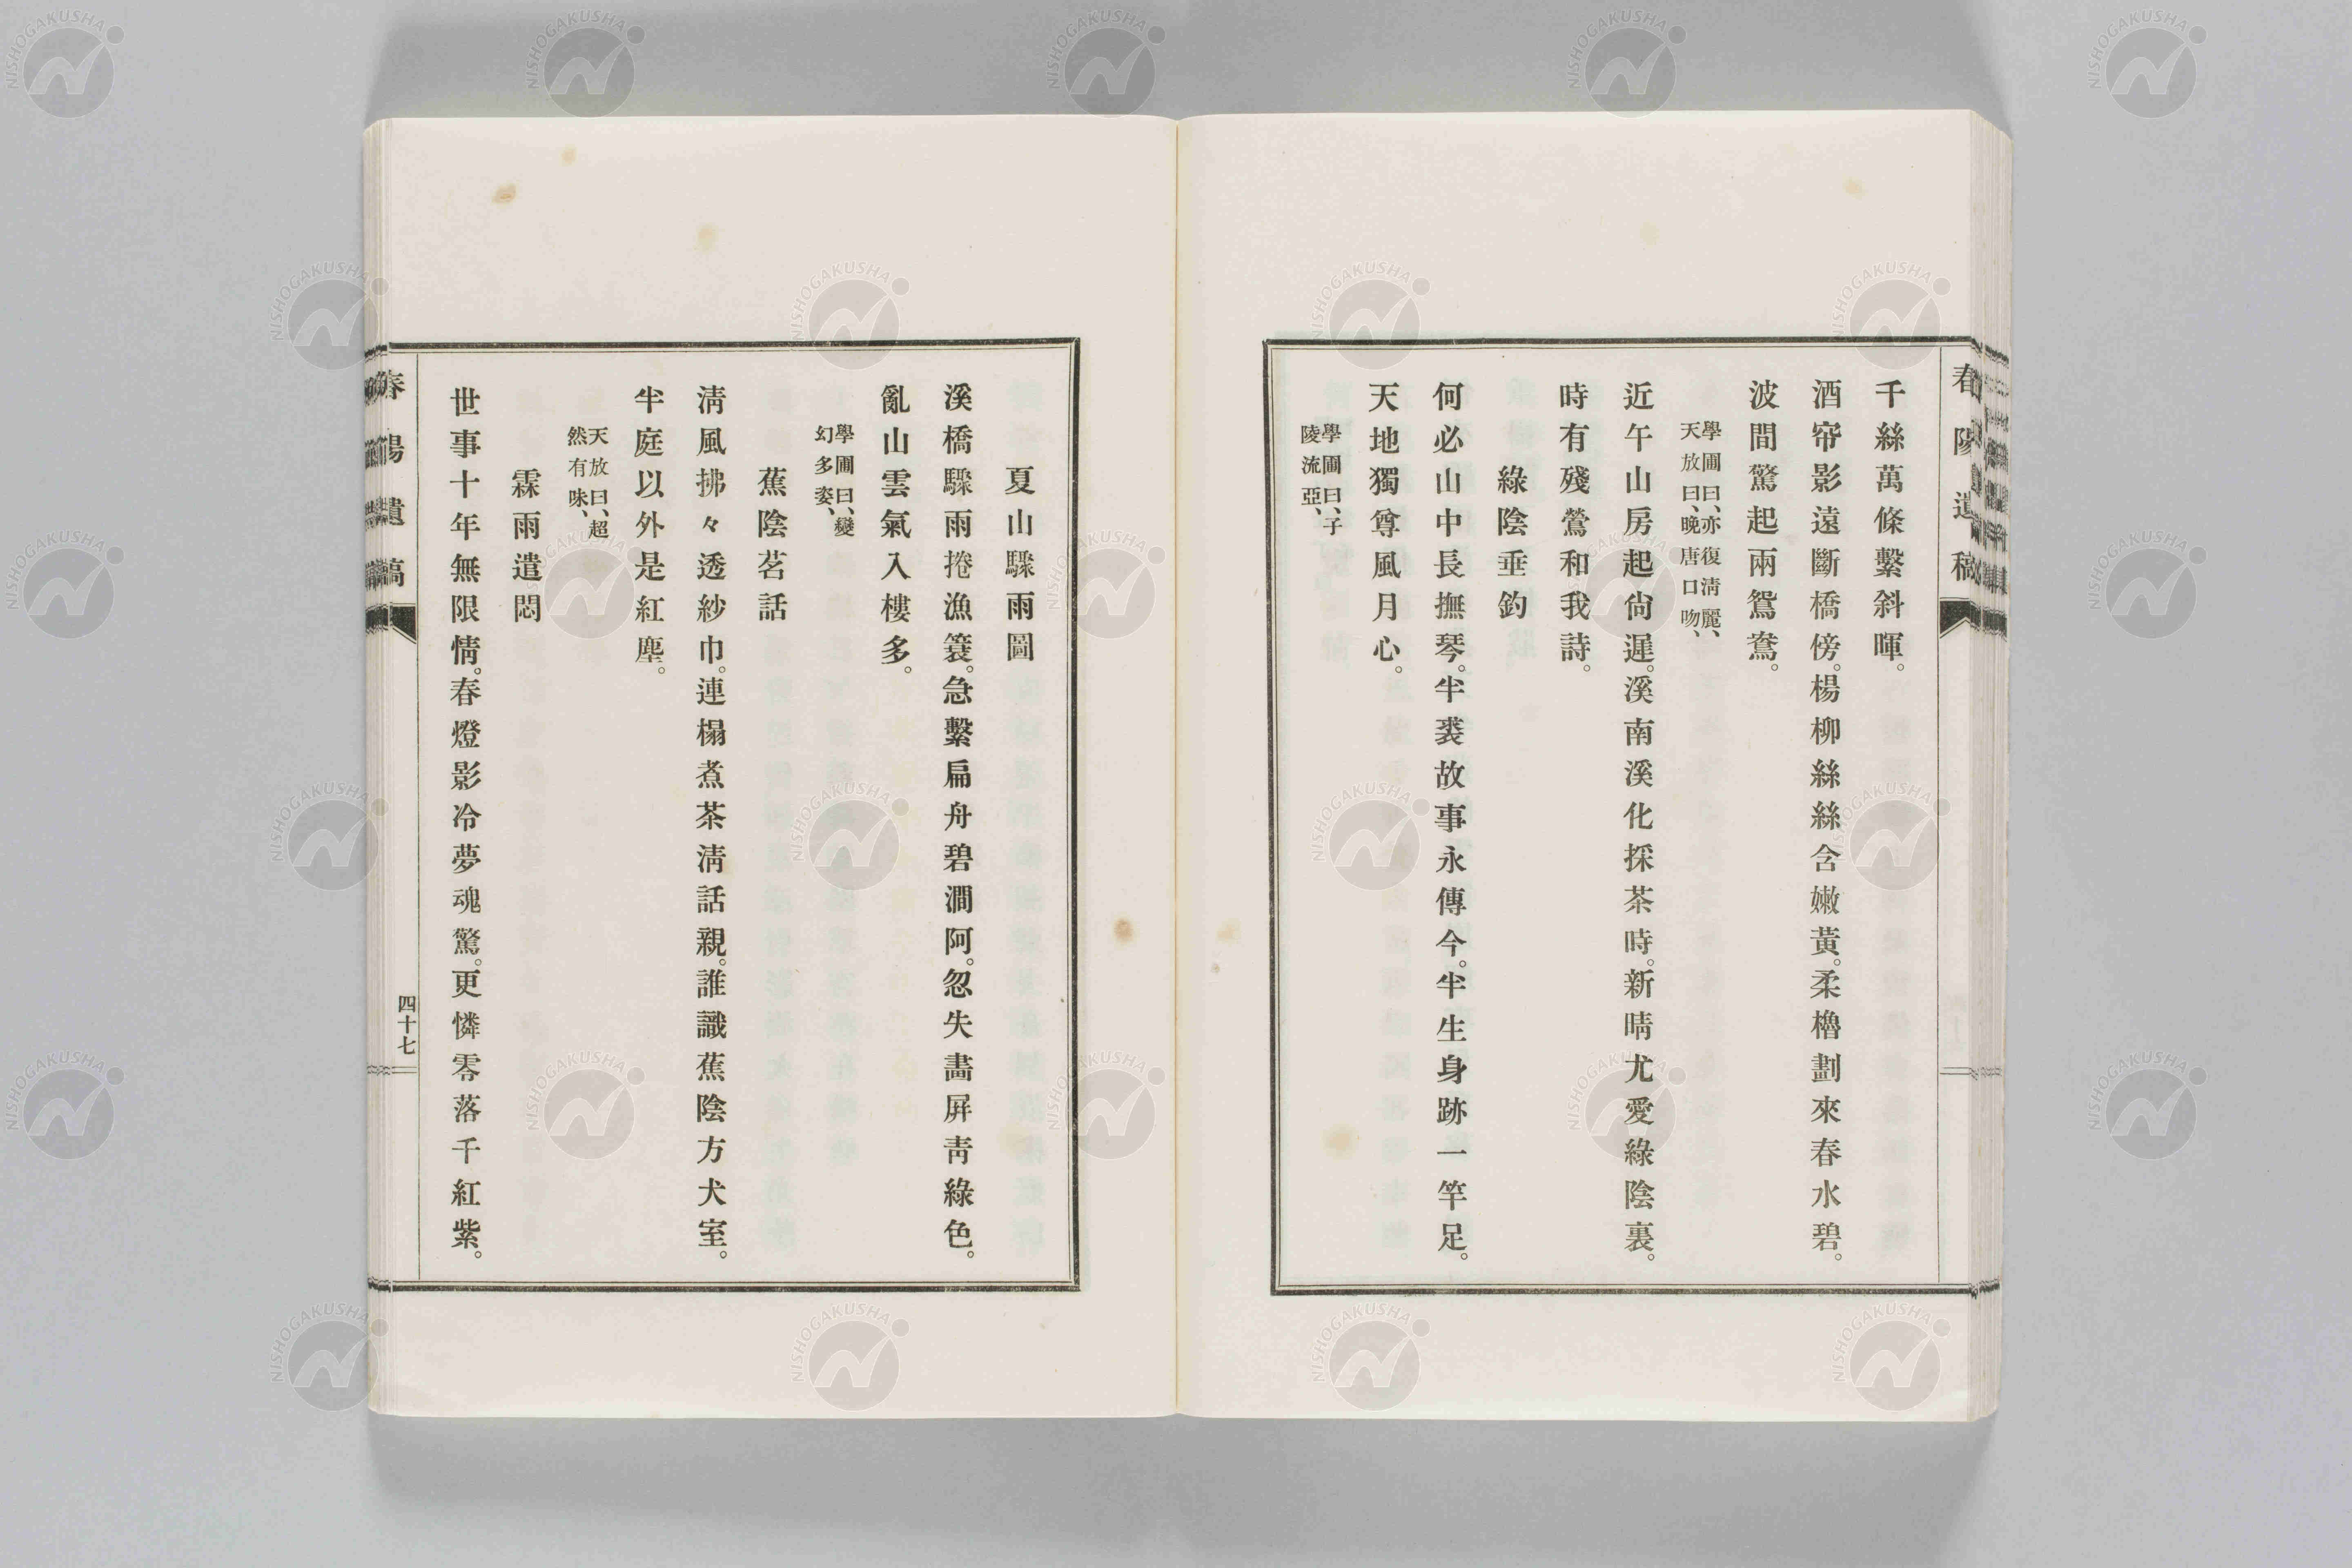 春陽遺稿
千絲萬條繫斜暉。
酒帘影遠斷橋傍。楊柳絲絲含嫩黃。柔櫓劃來春水碧。
波間驚起兩鴛鴦。
學圃曰、亦復淸麗、
天放曰、晚唐口吻、
近午山房起尙遲。溪南溪化採茶時。新晴尤愛綠陰裏。
時有殘鶯和我詩。
綠陰垂釣
何必山中長撫琴。半裘故事永傳今。半生身跡一竿足。
天地獨尊風月心。
學圃曰、子
陵流亞、
夏山驟雨圖
溪橋驟雨捲漁簑。急繫扁舟碧澗阿。忽失畫屏靑綠色。
亂山雲氣入樓多。
學圃曰、變
幻多姿、
蕉陰茗話
淸風拂々透紗巾。連榻煮茶淸話親。誰識蕉陰方犬室。
半庭以外是紅塵。
天放曰、超
然有味、
霖雨遣悶
世事十年無限情。春燈影冷夢魂驚。更憐零落千紅紫。
春陽遺稿
四十七
NISHOGAKUSHA